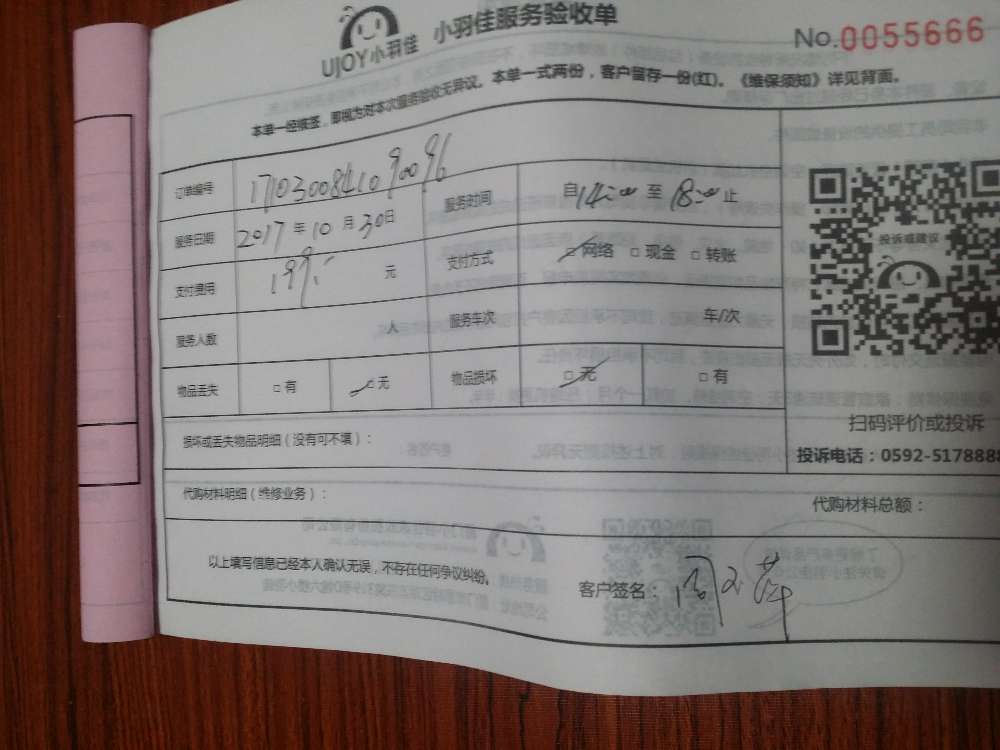 UJOY小羽佳 小羽佳服务验收单
No.0055666
本单一经核签，即视为对本次服务验收无异议。本单一式两份，客户留存一份(红)。《维保须知》详见背面。
订单编号 服务时间 自14:00至18:00止
服务日期 2017年10月30日
支付费用 199.- 元 支付方式 □网络 □现金 □转账
服务人数 人 服务车次 车/次
物品丢失 □有 □无 物品损坏 □无 □有
投诉或建议
扫码评价或投诉
投诉电话：0592-5178888
损坏或丢失物品明细（没有可不填）：
代购材料明细（维修业务）： 代购材料总额：
以上填写信息已经本人确认无误，不存在任何争议纠纷。
客户签名：